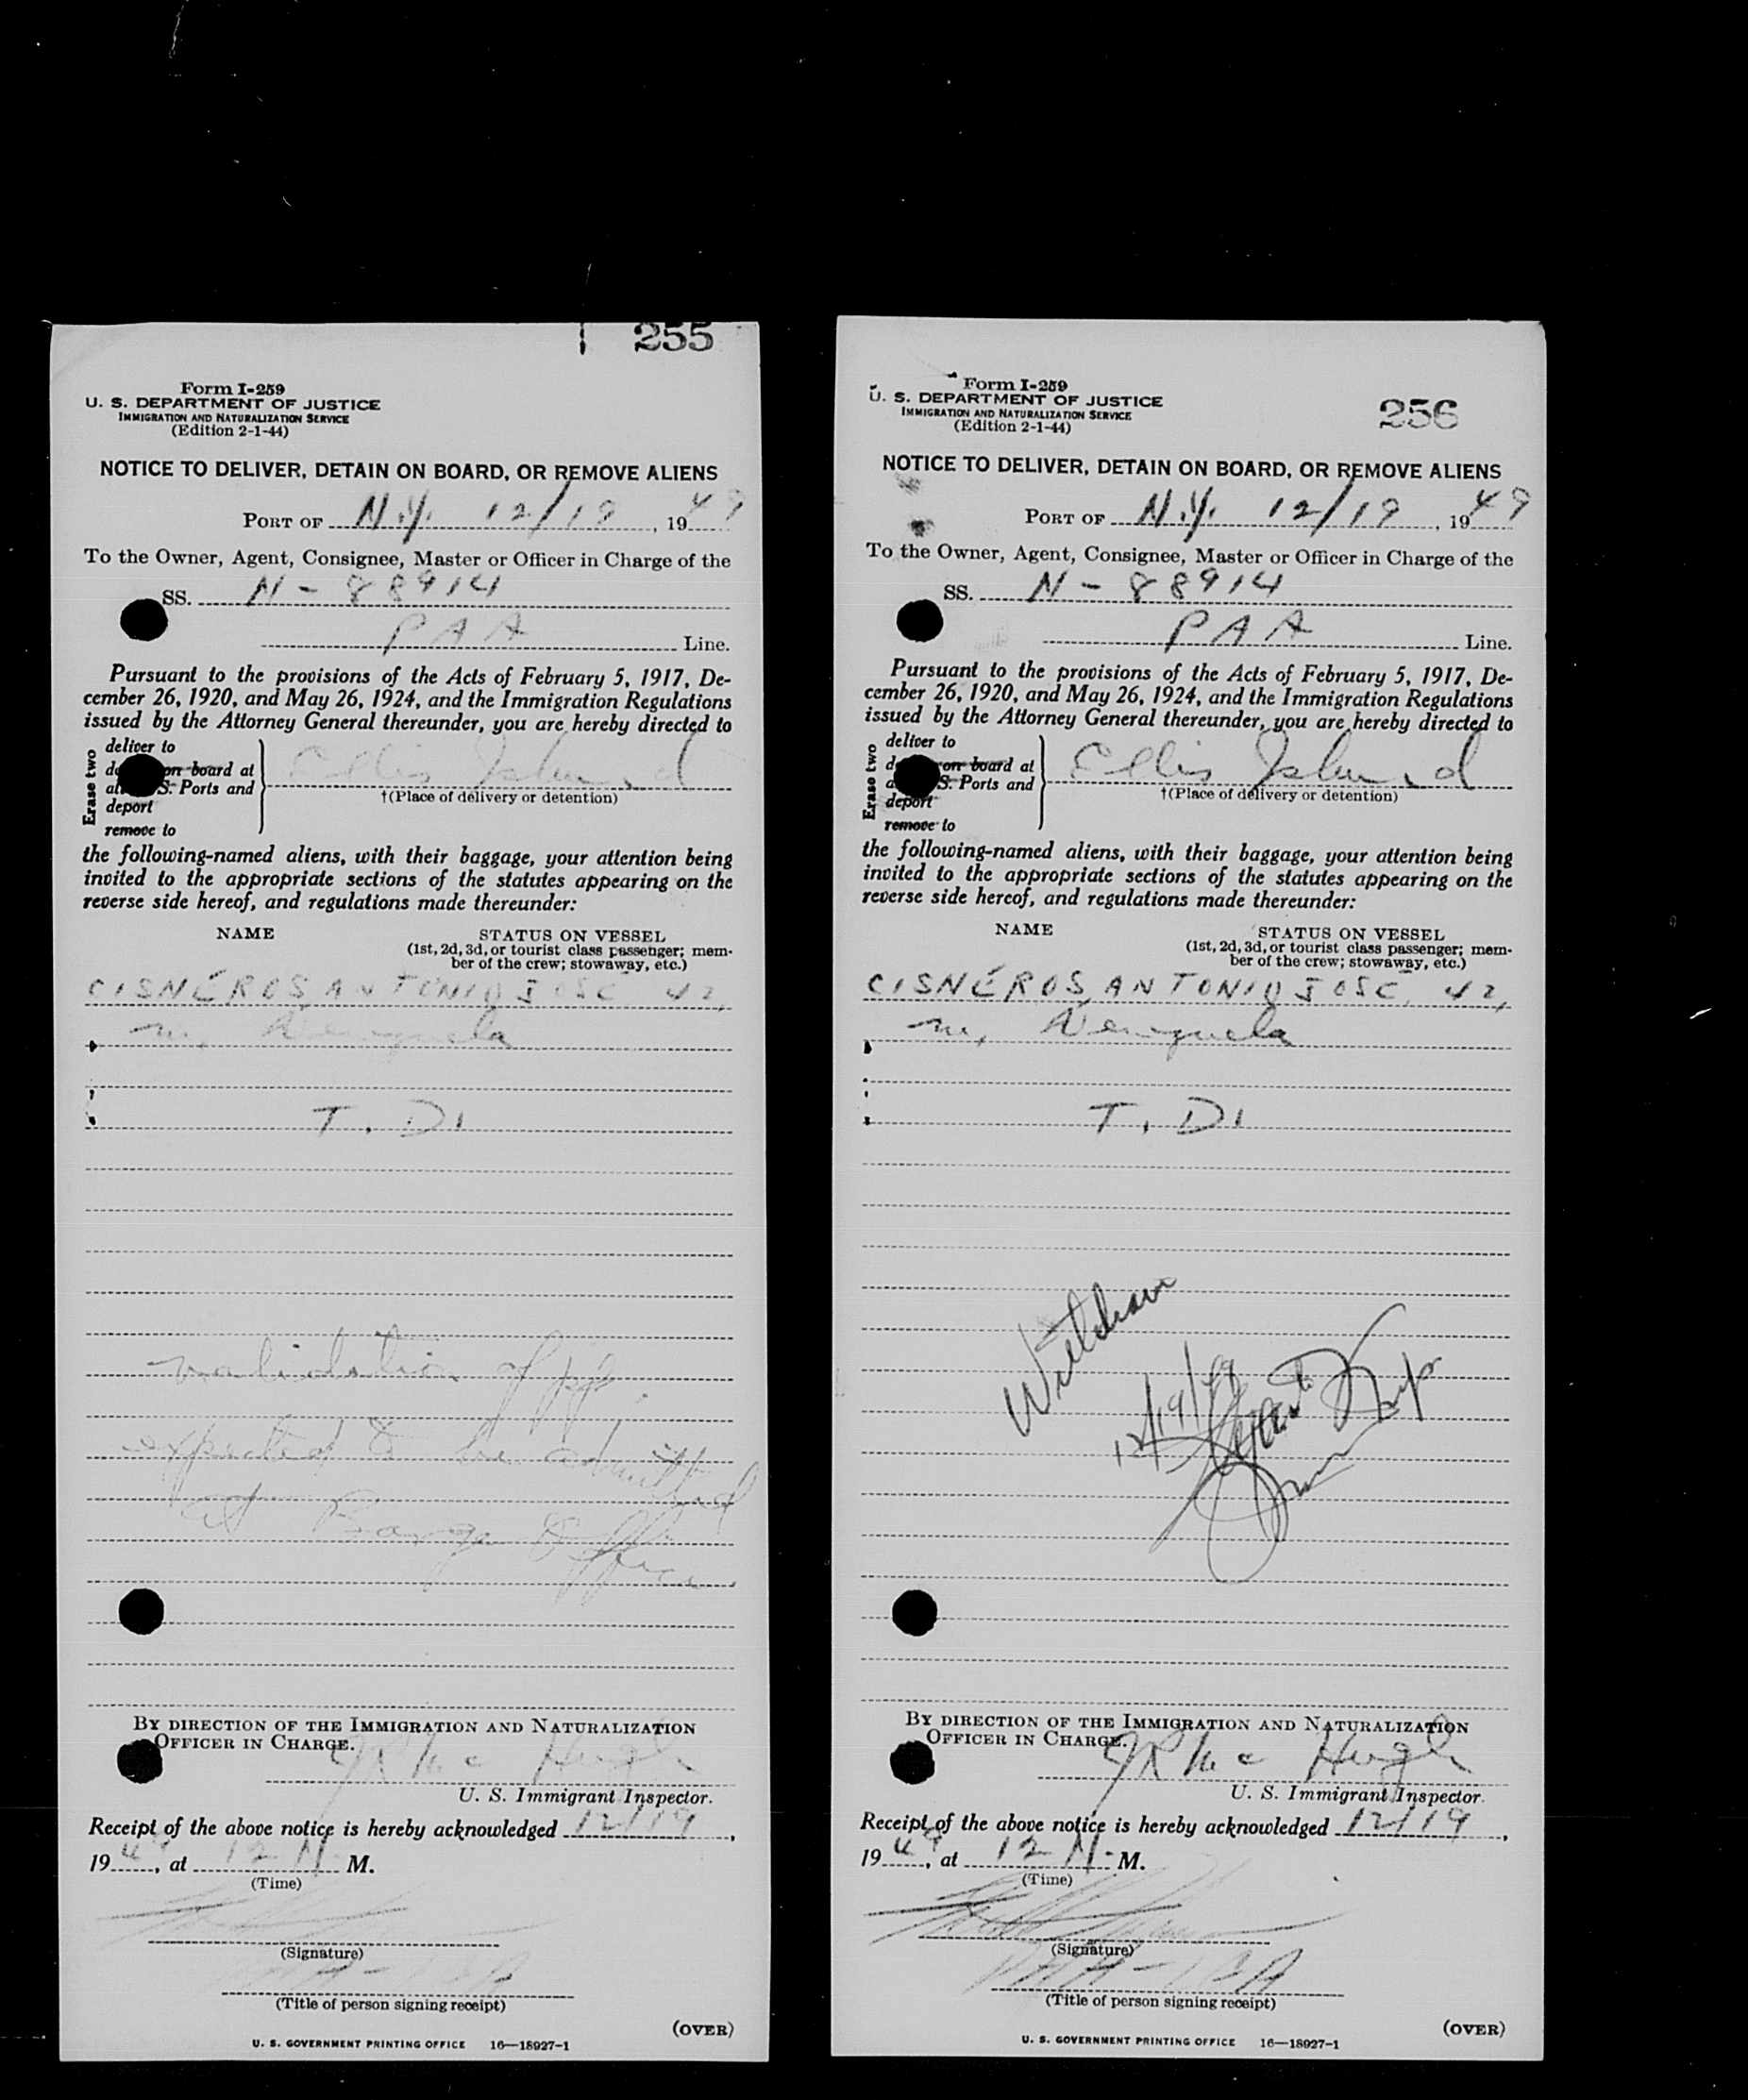 255
Form I-259
U. S. DEPARTMENT OF JUSTICE
IMMIGRATION AND NATURALIZATION SERVICE
(Edition 2-1-44)
NOTICE TO DELIVER, DETAIN ON BOARD, OR REMOVE ALIENS
PORT OF N.Y. 12/19, 1949
To the Owner, Agent, Consignee, Master or Officer in Charge of the
SS. N-88914
PAA Line.
Pursuant to the provisions of the Acts of February 5, 1917, De-
cember 26, 1920, and May 26, 1924, and the Immigration Regulations
issued by the Attorney General thereunder, you are hereby directed to
Erase two
deliver to
on board at
S. Ports and
deport
remove to
Ellis Island
†(Place of delivery or detention)
the following-named aliens, with their baggage, your attention being
invited to the appropriate sections of the statutes appearing on the
reverse side hereof, and regulations made thereunder:
NAME STATUS ON VESSEL
(1st, 2d, 3d, or tourist class passenger; mem-
ber of the crew; stowaway, etc.)
CISNEROS, ANTONIO JOSE 42,
m, Venezuela
T. D.
validation of pp.
expected to be admitted
at Barge Office
BY DIRECTION OF THE IMMIGRATION AND NATURALIZATION
OFFICER IN CHARGE.
JR McHugh
U. S. Immigrant Inspector.
Receipt of the above notice is hereby acknowledged 12/19,
1949, at 12 N. M.
(Time)
(Signature)
(Title of person signing receipt)
(OVER)
U. S. GOVERNMENT PRINTING OFFICE 16—18927-1
256
Form I-259
U. S. DEPARTMENT OF JUSTICE
IMMIGRATION AND NATURALIZATION SERVICE
(Edition 2-1-44)
NOTICE TO DELIVER, DETAIN ON BOARD, OR REMOVE ALIENS
PORT OF N.Y. 12/19, 1949
To the Owner, Agent, Consignee, Master or Officer in Charge of the
SS. N-88914
PAA Line.
Pursuant to the provisions of the Acts of February 5, 1917, De-
cember 26, 1920, and May 26, 1924, and the Immigration Regulations
issued by the Attorney General thereunder, you are hereby directed to
Erase two
deliver to
on board at
S. Ports and
deport
remove to
Ellis Island
†(Place of delivery or detention)
the following-named aliens, with their baggage, your attention being
invited to the appropriate sections of the statutes appearing on the
reverse side hereof, and regulations made thereunder:
NAME STATUS ON VESSEL
(1st, 2d, 3d, or tourist class passenger; mem-
ber of the crew; stowaway, etc.)
CISNEROS, ANTONIO JOSE, 42,
m, Venezuela
T. D.
Withdrawn
12/19/49
BY DIRECTION OF THE IMMIGRATION AND NATURALIZATION
OFFICER IN CHARGE.
JR McHugh
U. S. Immigrant Inspector.
Receipt of the above notice is hereby acknowledged 12/19,
1949, at 12 N. M.
(Time)
(Signature)
(Title of person signing receipt)
(OVER)
U. S. GOVERNMENT PRINTING OFFICE 16—18927-1